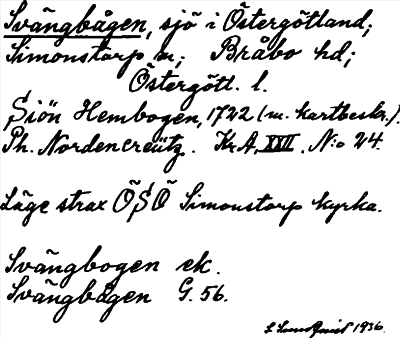 Svängbågen, sjö i Östergötland;
Simonstorp sn; Bråbo hd;
Östergötl. l.
Siön Hembogen, 1722 (m. kartbeskr.).
Ph. Nordencreütz. KrA, XXII. N:o 24.
Läge strax ÖSÖ Simonstorp kyrka.
Svängbogen ek.
Svängbågen G. 56.
1936.